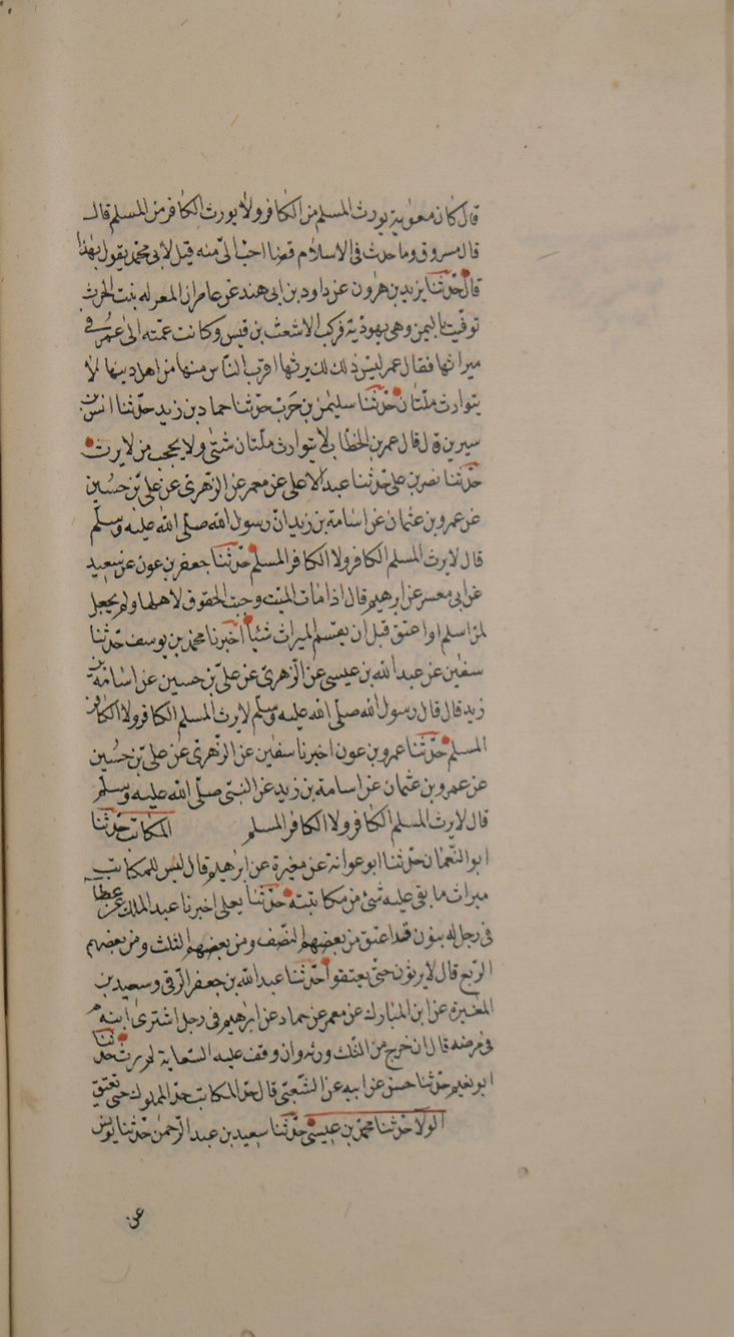 قال كان معوية يورث المسلم من الكافر ولا يورث الكافر من المسلم قال
قال مسروق وما حدث في الاسلام قضا احبّ الىّ منه قيل لابي محمد يقول بهذا
قال حدّثنا يزيد بن هرون عن داود بن ابي هند عن عامر ان المعر له بنت الحرث
توفّيت باليمن وهي يهوديّة فركب الاشعث بن قيس وكانت عمّته الى عمر في
ميراثها فقال عمر ليس ذلك لك يرثها اقرب النّاس منها من اهل دينها لا
يتوارث ملّتان حدّثنا سليمن بن حَرْب حدّثنا حماد بن زيد حدّثنا انس بن
سيرين قال قال عمر بن الخطاب لا يتوارث ملّتان شتّى ولا يحجب من لا يرث
حدّثنا نصر بن علي حدّثنا عبد الاعلى عن معمر عن الزّهريّ عن علي بن حسين
عن عمرو بن عثمان عن اسامة بن زيد انّ رسول الله صلى الله عليه وسلّم
قال لا يرث المسلم الكافر ولا الكافر المسلم حدّثنا جعفر بن عون عن سعيد
عن ابي معسر عن ابرهيم قال اذا مات الميّت وجبت الحقوق لاهلها ولم يجعل
لمن اسلم او اعتق قبل ان يقسم الميراث شيأ اخبرنا محمد بن يوسف حدّثنا
سفين عن عبد الله بن عيسى عن الزّهريّ عن عليّ بن حسين عن اسامة بن
زيد قال قال رسول الله صلى الله عليه وسلّم لا يرث المسلم الكافر ولا الكافر
المسلم حدّثنا عمرو بن عون اخبرنا سفين عن الزّهريّ عن علي بن حسين
عن عمرو بن عثمان عن اسامة بن زيد عن النبيّ صلّى الله عليه وسلّم
قال لا يرث المسلم الكافر ولا الكافر المسلم المكاتب حدّثنا
ابو النّعمان حدّثنا ابو عوانة عن مغيرة عن ابرهيم قال ليس للمكاتب
ميراث ما بقي عليه شئ من مكاتبته حدّثنا يعلى اخبرنا عبد الملك عن عطا
في رجل له بنون قد اعتق من بعضهم النّصف ومن بعضهم الثلث ومن بعضهم
الرّبع قال لا يرثون حتّى يعتقوا حدّثنا عبد الله بن جعفر الرّقي وسعيد بن
المغيرة عن ابن المبارك عن معمر عن حماد عن ابرهيم في رجل اشترى ابنه
في مرضه قال ان خرج من الثلث ورثه وان وقعت عليه السّعاية لم يرث حدّثنا
ابو نعيم حدّثنا حسن عن ابيه عن الشّعبيّ قال حدّ المكاتب حدّ المملوك حتى يعتق
الولا حدّثنا محمد بن عيسى حدّثنا سعيد بن عبد الرّحمن حدّثنا يونس
عن